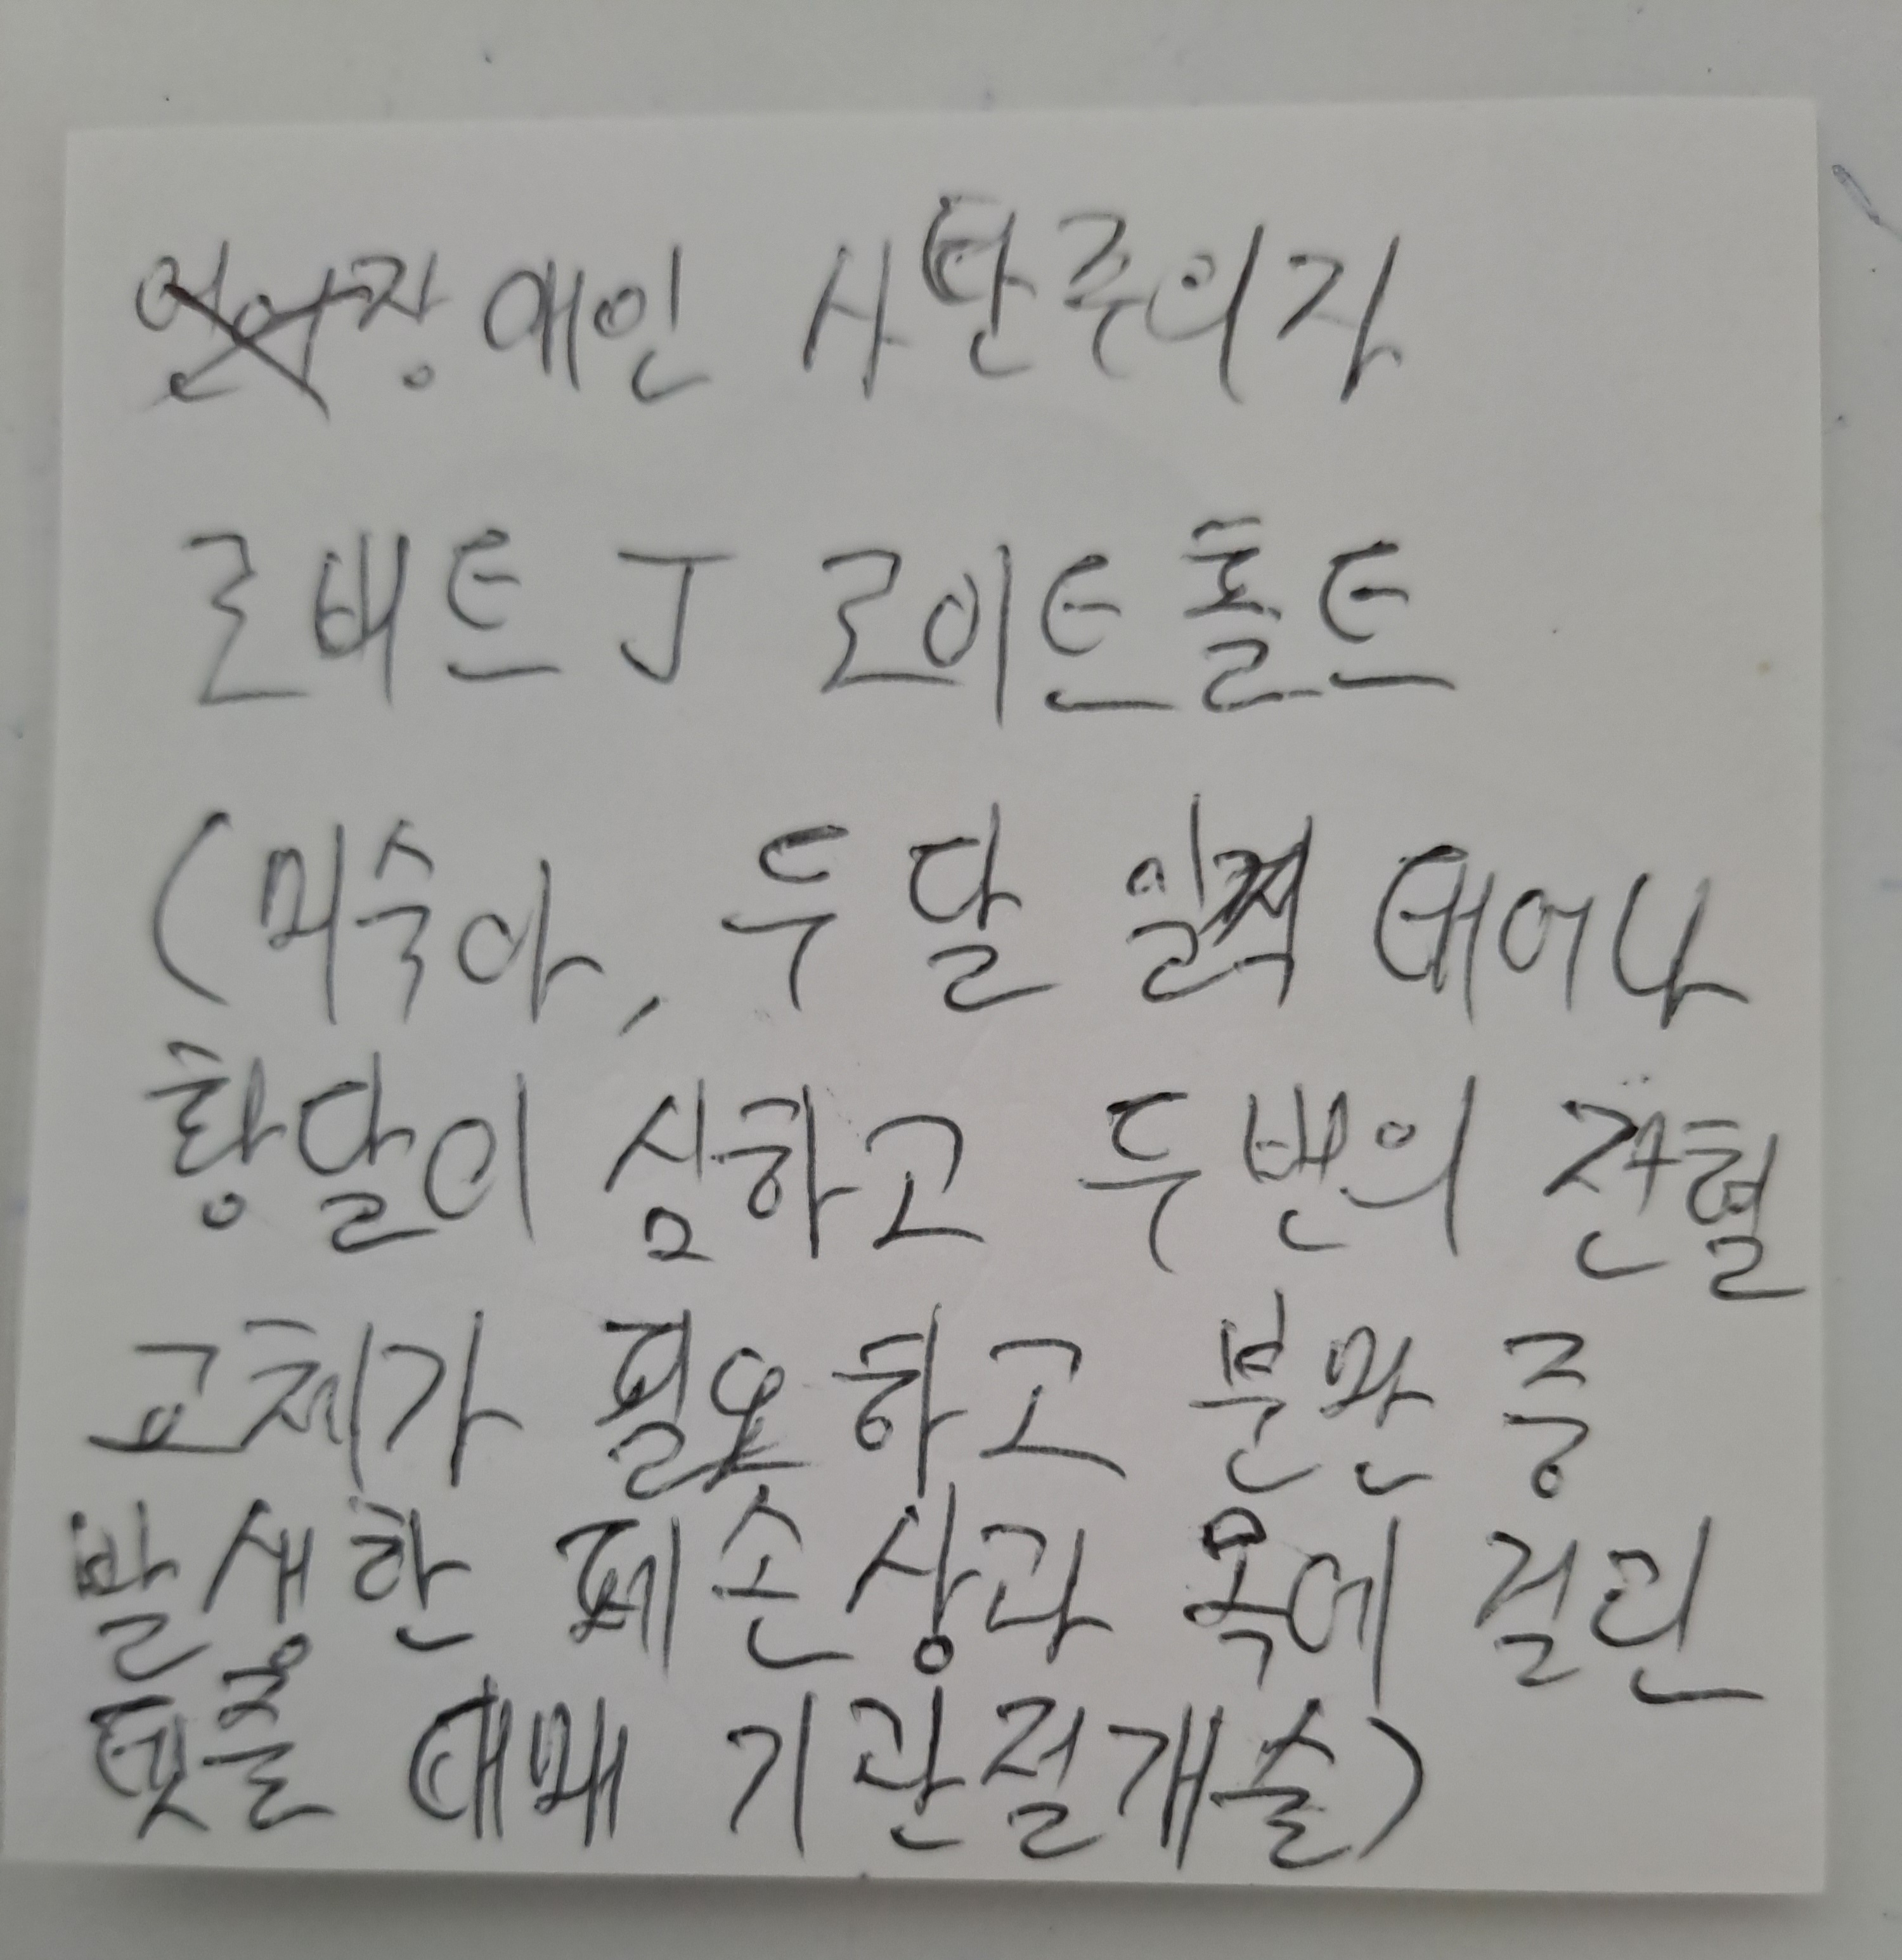 장애인 사탄주의자
로버트 J 로이트홀트
(미숙아, 두달 일찍 태어나
황달이 심하고 두번의 전혈
교체가 필요하고 분만 중
발생한 폐손상과 목에 걸린
탯줄 때매 기관절개술)